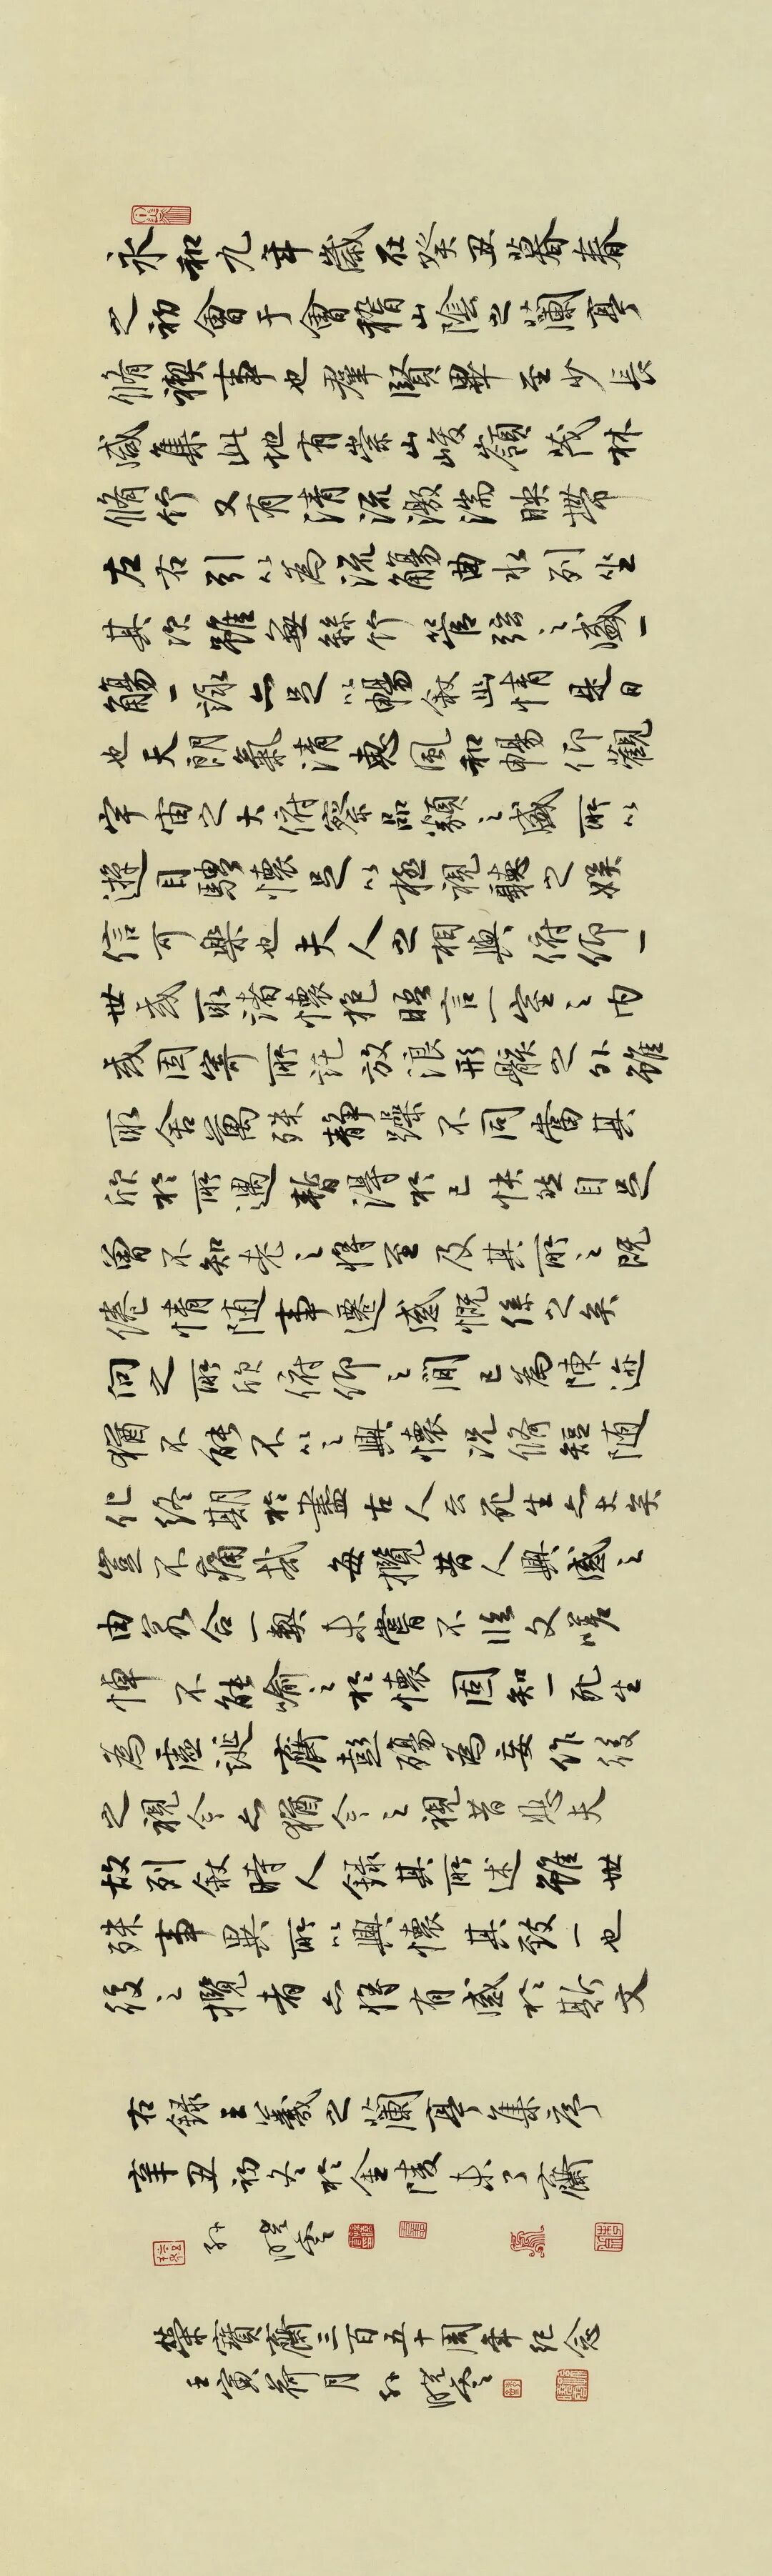 永和九年歲在癸丑暮春
之初會于會稽山陰之蘭亭
脩禊事也羣賢畢至少長
咸集此地有崇山峻領茂林
脩竹又有清流激湍映帶
左右引以為流觴曲水列坐
其次雖無絲竹管弦之盛一
觴一詠亦足以暢敘幽情是日
也天朗氣清惠風和暢仰觀
宇宙之大俯察品類之盛所以
遊目騁懷足以極視聽之娛
信可樂也夫人之相與俯仰一
世或取諸懷抱晤言一室之內
或因寄所託放浪形骸之外雖
取舍萬殊靜躁不同當其
欣於所遇暫得於己快然自足
曾不知老之將至及其所之既
倦情隨事遷感慨係之矣
向之所欣俯仰之間已為陳迹
猶不能不以之興懷況脩短隨
化終期於盡古人云死生亦大矣
豈不痛哉每攬昔人興感之
由若合一契未嘗不臨文嗟
悼不能喻之於懷固知一死生
為虛誕齊彭殤為妄作後
之視今亦猶今之視昔悲夫
故列敘時人錄其所述雖世
殊事異所以興懷其致一也
後之攬者亦將有感於斯文
右錄王羲之蘭亭集序
辛丑初冬於金陵未了齋
孫曉雲
榮寶齋三百五十周年紀念
壬寅荷月孫曉雲